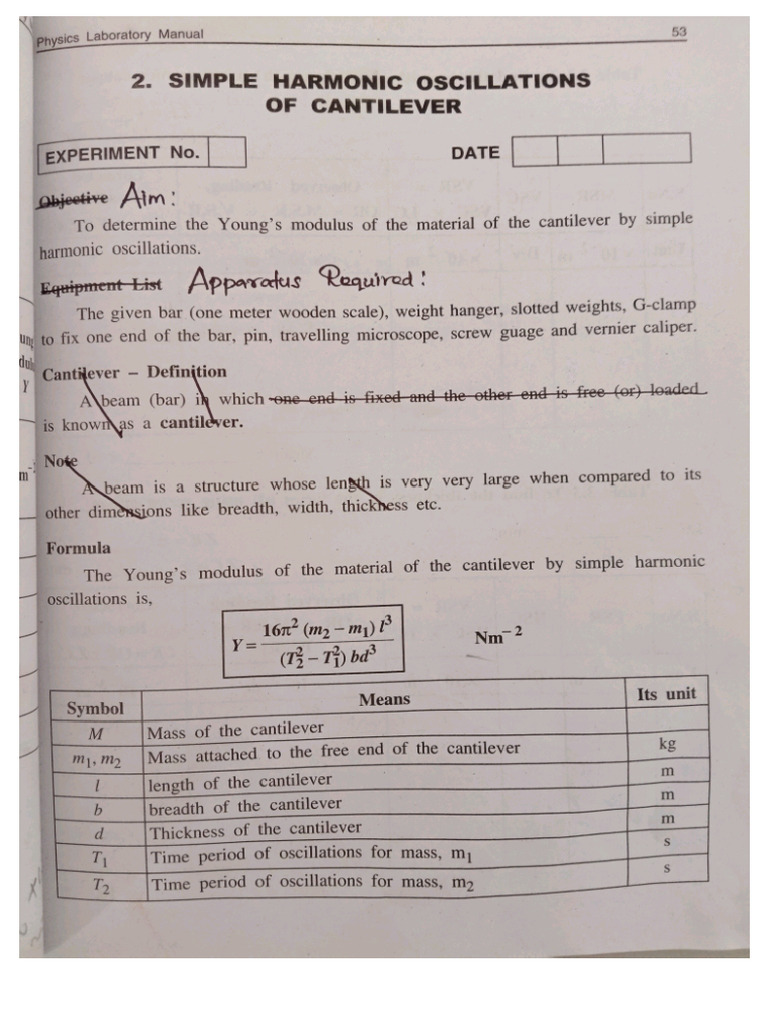 Physics Laboratory Manual 53
2. SIMPLE HARMONIC OSCILLATIONS
OF CANTILEVER
EXPERIMENT No. DATE
Objective Aim :
To determine the Young's modulus of the material of the cantilever by simple
harmonic oscillations.
Equipment List Apparatus Required :
The given bar (one meter wooden scale), weight hanger, slotted weights, G-clamp
to fix one end of the bar, pin, travelling microscope, screw guage and vernier caliper.
Cantilever – Definition
A beam (bar) in which one end is fixed and the other end is free (or) loaded
is known as a cantilever.
Note
A beam is a structure whose length is very very large when compared to its
other dimensions like breadth, width, thickness etc.
Formula
The Young's modulus of the material of the cantilever by simple harmonic
oscillations is,
Y = 16π² (m₂ – m₁) l³ / (T₂² – T₁²) bd³ Nm⁻²
Symbol Means Its unit
M Mass of the cantilever
m₁, m₂ Mass attached to the free end of the cantilever kg
l length of the cantilever m
b breadth of the cantilever m
d Thickness of the cantilever m
T₁ Time period of oscillations for mass, m₁ s
T₂ Time period of oscillations for mass, m₂ s